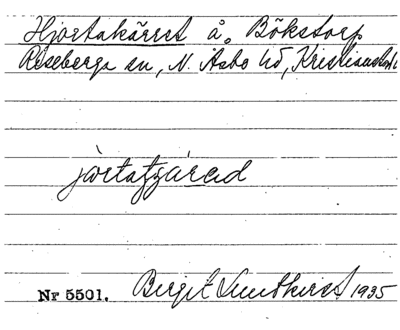 Hjortakärret å. Bökstorp
Riseberga sn, N. Åsbo hd, Kristianstads
jòrtatjárəd
Nr 5501. Birgit Lundkvist 1935